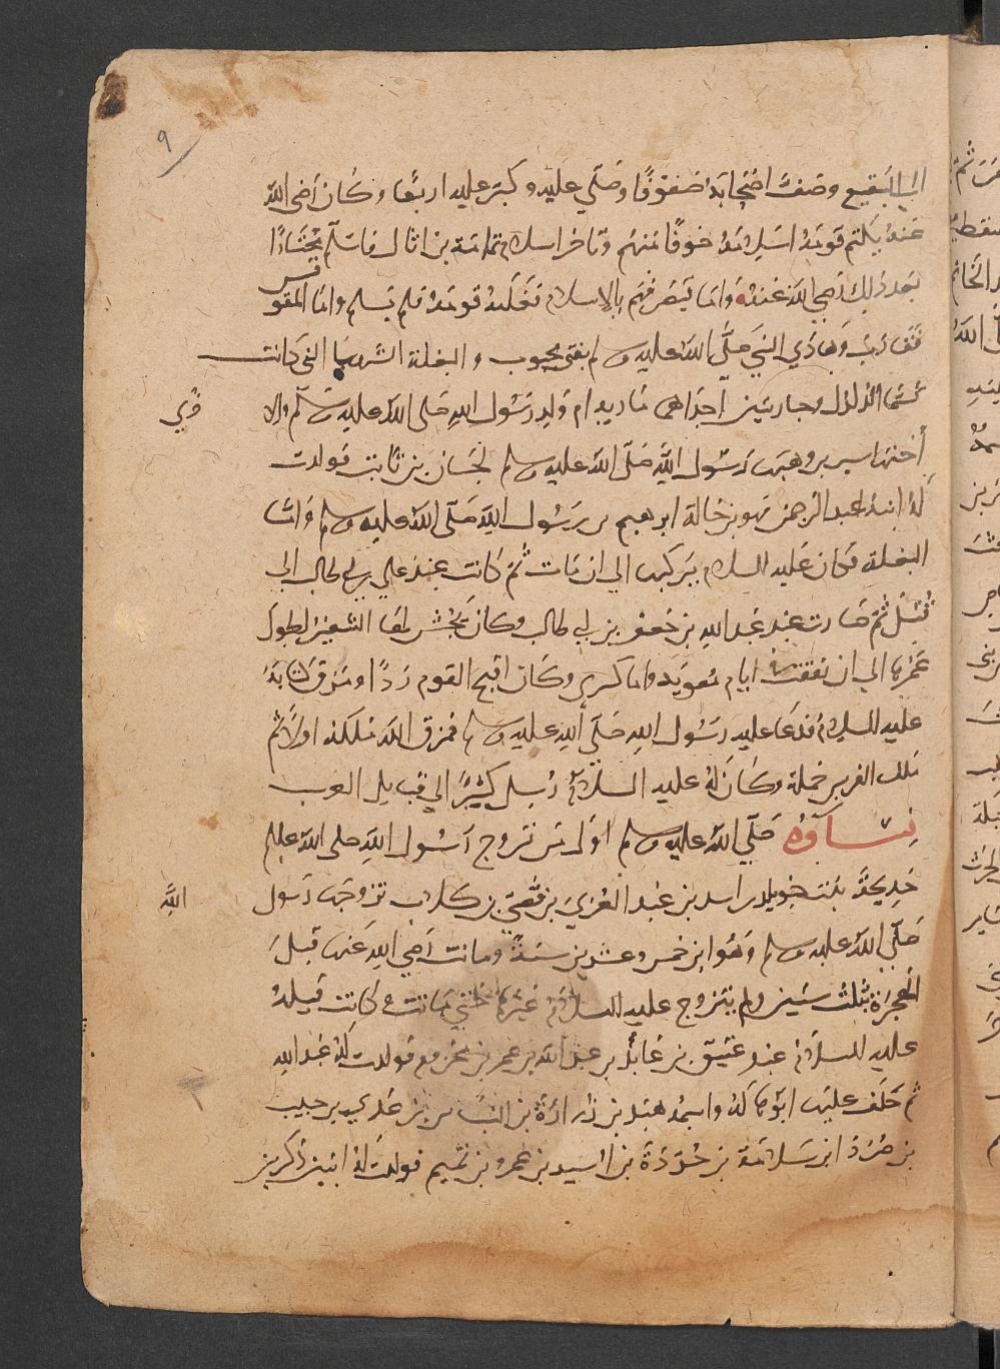 ٩
الي البقيع وصف اصحابه صفوفا وصلي عليه وكبر عليه اربعا وكان رضي الله
عنه يكتم قومه اسلامه خوفا منهم وتاخر اسلام ثمامة بن اثال فاسلم مختارا
بعد ذلك رضي الله عنه واما قيصر فهم بالاسلام فغلبه قومه فلم يسلم واما المقوقس
فقارب وهادي النبي صلي الله عليه وسلم بفتي مجبوب والبغلة الشهبا التي كانت
تسمي الدلدل وجاريتين احداهما ماريه ام ولد رسول الله صلي الله عليه وسلم والا
خري
أختها سيرين وهبها رسول الله صلي الله عليه وسلم لحسان بن ثابت فولدت
له ابنه عبد الرحمن فهو بن خالة ابرهيم بن رسول الله صلي الله عليه وسلم واما
البغلة فكان عليه السلام يركبها الي ان مات ثم كانت عند علي بن ابي طالب الي
قتل ثم صارت عند عبد الله بن جعفر بن ابي طالب وكان يحش لها الشعير لطول
عمرها الي ان نفقت في ايام معويه واما كسري وكان اقبح القوم ردا ومزق كتابه
عليه السلام فدعا عليه رسول الله صلي الله عليه وسلم فمزق الله ملكه اولا ثم
ملك الفرس جملة وكان له عليه السلام رسل كثير الي قبايل العرب
نساؤه صلي الله عليه وسلم اول من تزوج رسول الله صلي الله عليه وسلم
خديجة بنت خويلد بن اسد بن عبد العزي بن قصي بن كلاب تزوجها رسول
الله
صلي الله عليه وسلم وهو ابن خمس وعشرين سنة وماتت رضي الله عنها قبل
الهجرة بثلث سنين ولم يتزوج عليه السلام غيرها حتي ماتت وكانت قبله
عليه السلام عند عتيق بن عابد بن عبد الله بن عمر بن مخزوم فولدت له عبد الله
ثم خلف عليها ابو هالة واسمه هند بن زرارة بن النباش بن عدي بن حبيب
بن صرد ابن سلامة بن جردة بن اسيد بن عمرو بن تميم فولدت له ابنين ذكرين